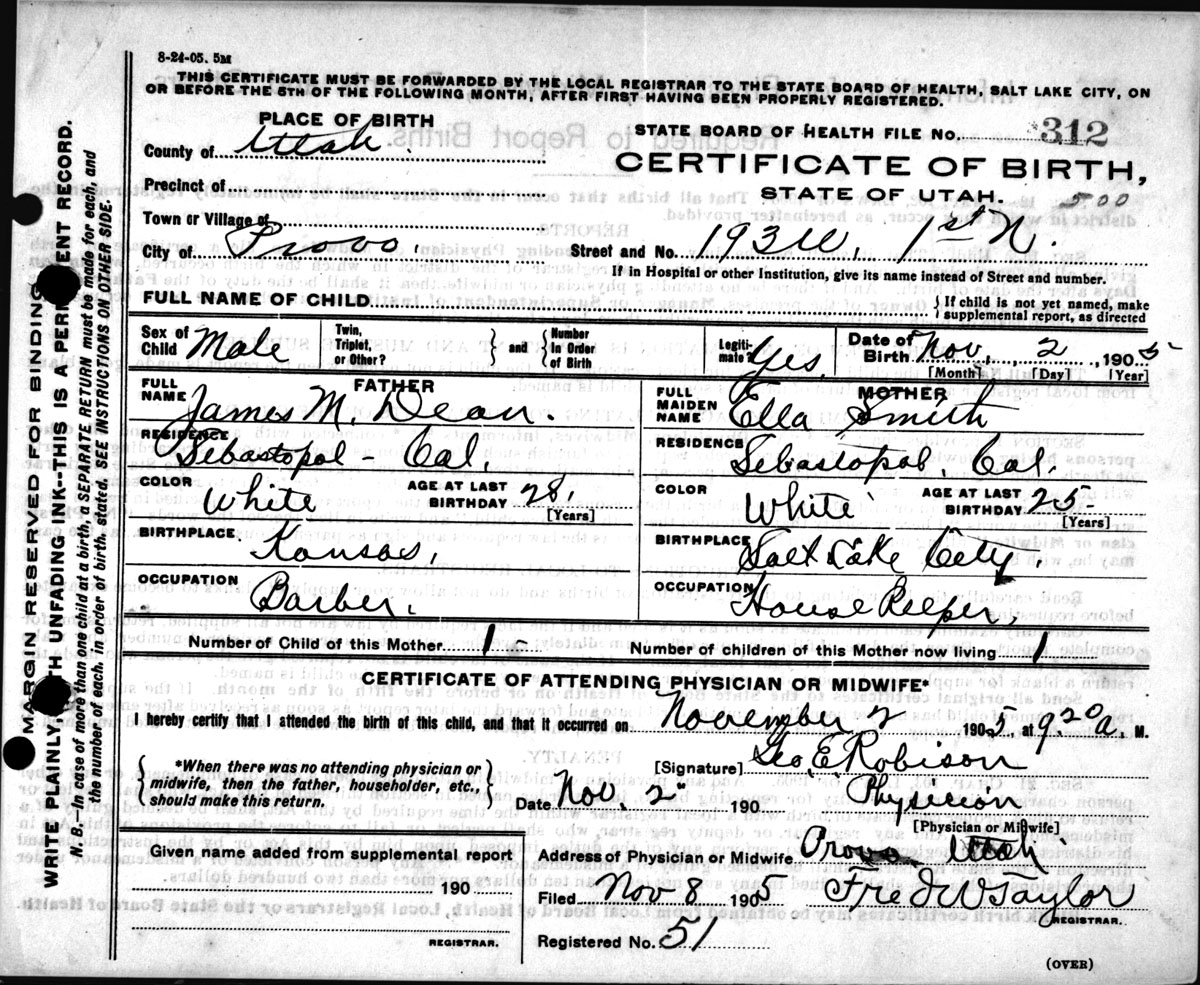 8-24-05. 5M
THIS CERTIFICATE MUST BE FORWARDED BY THE LOCAL REGISTRAR TO THE STATE BOARD OF HEALTH, SALT LAKE CITY, ON
OR BEFORE THE 5TH OF THE FOLLOWING MONTH, AFTER FIRST HAVING BEEN PROPERLY REGISTERED.
PLACE OF BIRTH
County of Utah.
Precinct of
Town or Village of
City of Provo.
STATE BOARD OF HEALTH FILE No. 312
CERTIFICATE OF BIRTH,
STATE OF UTAH. 500
Street and No. 193 W. 1st N.
If in Hospital or other Institution, give its name instead of Street and number.
FULL NAME OF CHILD
{ If child is not yet named, make
supplemental report, as directed
Sex of Child Male
Twin, Triplet, or Other?
} and {
Number In Order of Birth
Legitimate? Yes.
Date of Birth Nov. 2 1905
[Month] [Day] [Year]
FATHER
FULL NAME James M. Dean.
RESIDENCE Sebastopol Cal.
COLOR White
AGE AT LAST BIRTHDAY 28.
[Years]
BIRTHPLACE Kansas.
OCCUPATION Barber.
MOTHER
FULL MAIDEN NAME Ella Smith
RESIDENCE Sebastopol. Cal.
COLOR White
AGE AT LAST BIRTHDAY 25
[Years]
BIRTHPLACE Salt Lake City.
OCCUPATION House Keeper.
Number of Child of this Mother 1
Number of children of this Mother now living 1
CERTIFICATE OF ATTENDING PHYSICIAN OR MIDWIFE*
I hereby certify that I attended the birth of this child, and that it occurred on November 2 1905. at 9.20 a. M.
{ *When there was no attending physician or
midwife, then the father, householder, etc.,
should make this return. }
[Signature] Geo. E. Robison
Date Nov. 2" 190
Physician
[Physician or Midwife]
Given name added from supplemental report
190
REGISTRAR.
Address of Physician or Midwife Provo Utah
Filed Nov 8 1905
Fred W Taylor
REGISTRAR.
Registered No. 51
(OVER)
MARGIN RESERVED FOR BINDING
WRITE PLAINLY WITH UNFADING INK--THIS IS A PERMANENT RECORD.
N. B.—In case of more than one child at a birth, a SEPARATE RETURN must be made for each, and
the number of each, in order of birth, stated. SEE INSTRUCTIONS ON OTHER SIDE.